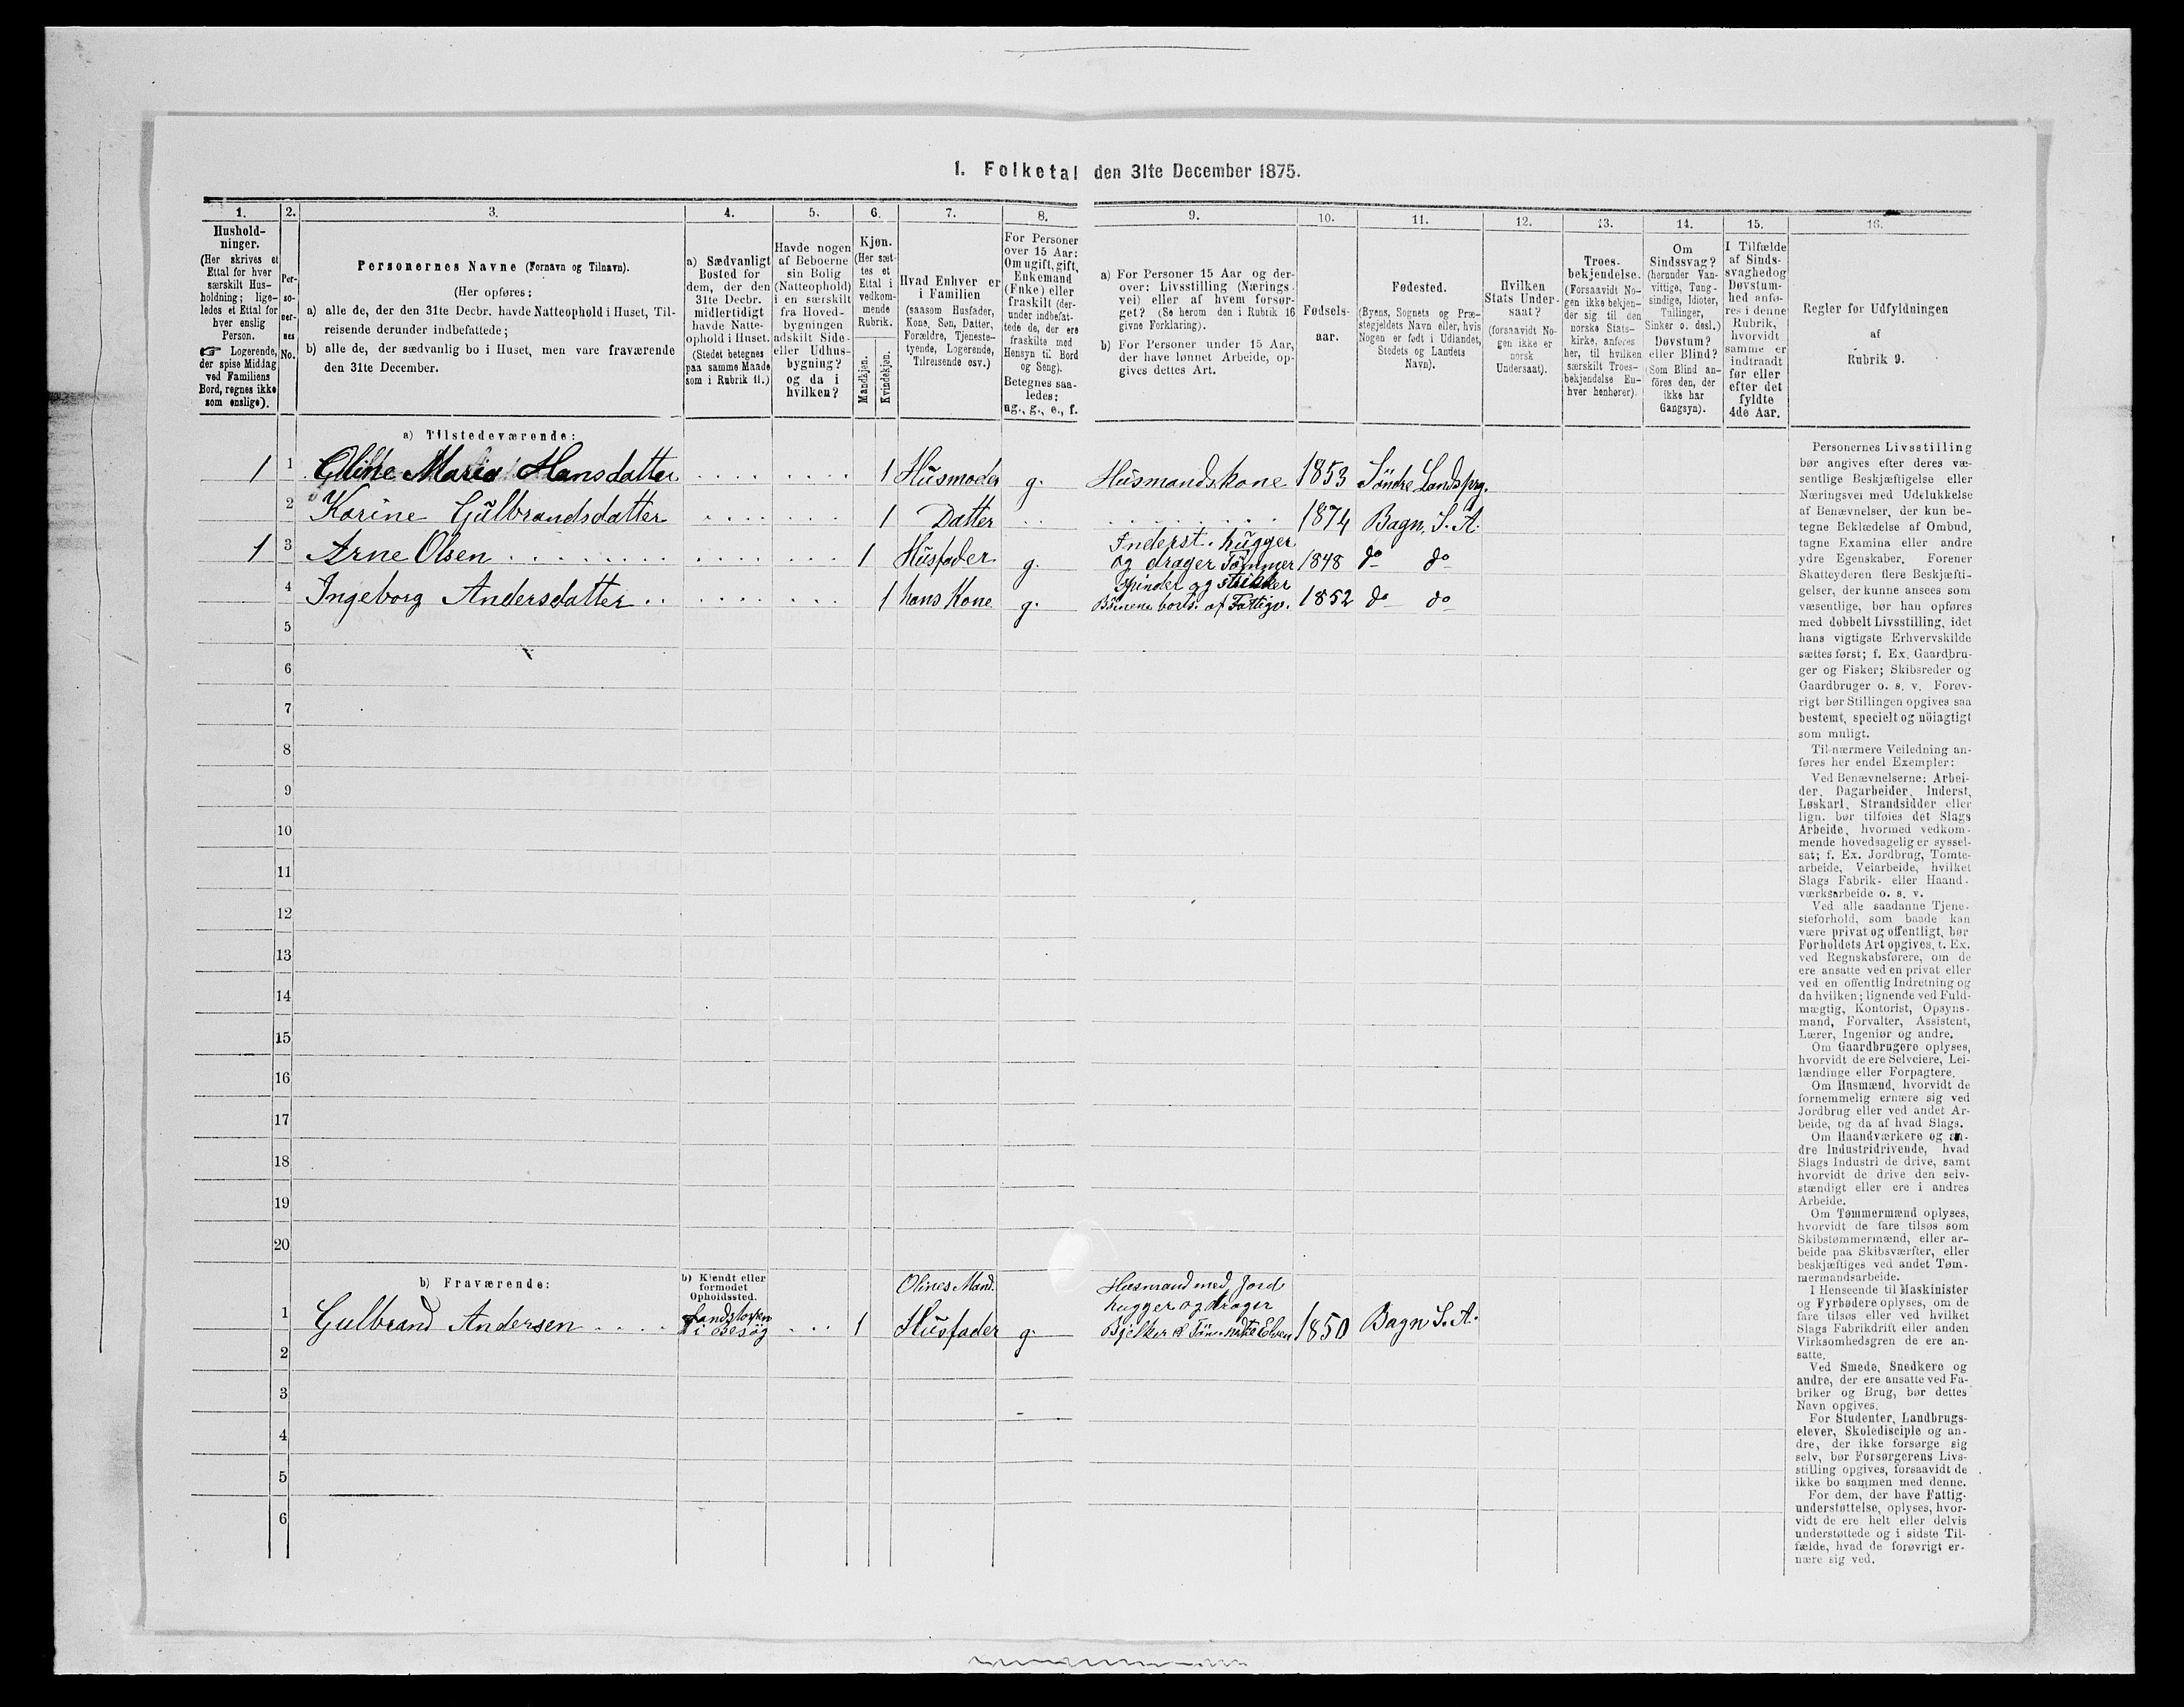 1. Folketal den 31te December 1875.
1.
2.
3.
4.
5.
6.
7.
8.
9.
10.
11.
12.
13.
14.
15.
16.
Hushold-
ninger.
(Her skrives et
Ettal for hver
særskilt Hus-
holdning; lige-
ledes et Ettal for
hver enslig
Person.
☞ Logerende,
der spise Middag
ved Familiens
Bord, regnes ikke
som enslige).
Per-
so-
ner-
nes
No.
Personernes Navne (Fornavn og Tilnavn).
(Her opføres:
a) alle de, der den 31te Decbr. havde Natteophold i Huset, Til-
reisende derunder indbefattede;
b) alle de, der sædvanlig bo i Huset, men vare fraværende
den 31te December.
a) Sædvanligt
Bosted for
dem, der den
31te Decbr.
midlertidigt
havde Natte-
ophold i Huset.
(Stedet betegnes
paa samme Maade
som i Rubrik 11.)
Havde nogen
af Beboerne
sin Bolig
(Natteophold)
i en særskilt
fra Hoved-
bygningen
adskilt Side-
eller Udhus-
bygning?
og da i
hvilken?
Kjøn.
(Her sæt-
tes et
Ettal i
vedkom-
mende
Rubrik.
Mandkjøn.
Kvindekjøn.
Hvad Enhver er
i Familien
(saasom Husfader,
Kone, Søn, Datter,
Forældre, Tjeneste-
tyende, Logerende,
Tilreisende osv.)
For Personer
over 15 Aar:
Om ugift, gift,
Enkemand
(Enke) eller
fraskilt (der-
under indbefat-
tede de, der ere
fraskilte med
Hensyn til Bord
og Seng).
Betegnes saa-
ledes:
ug., g., e., f.
a) For Personer 15 Aar og der-
over: Livsstilling (Nærings-
vei) eller af hvem forsør-
get? (Se herom den i Rubrik 16
givne Forklaring).
b) For Personer under 15 Aar,
der have lønnet Arbeide, op-
gives dettes Art.
Fødsels-
aar.
Fødested.
(Byens, Sognets og Præ-
stegjeldets Navn eller, hvis
Nogen er født i Udlandet,
Stedets og Landets
Navn).
Hvilken
Stats Under-
saat?
(forsaavidt No-
gen ikke er
norsk
Undersaat).
Troes-
bekjendelse.
(Forsaavidt No-
gen ikke bekjen-
der sig til den
norske Stats-
kirke, anføres
her, til hvilken
særskilt Troes-
bekjendelse En-
hver henhører).
Om
Sindssvag?
(herunder Van-
vittige, Tung-
sindige, Idioter,
Tullinger,
Sinker o. desl.)
Døvstum?
eller Blind?
(Som Blind an-
föres den, der
ikke har
Gangsyn).
I Tilfælde
af Sinds-
svaghedog
Døvstum-
hed anfø-
res i denne
Rubrik,
hvorvidt
samme er
indtraadt
før eller
efter det
fyldte
4de Aar.
Regler for Udfyldningen
af
Rubrik 9.
a) Tilstedeværende:
1 1 Oline Maria Hansdatter 1 Husmoder g. Husmandskone 1853 Söndre Lands prg.
2 Karine Gulbrandsdatter 1 Datter 1874 Bagn, S. A.
1 3 Arne Olsen 1 Husfader g. Inderst. hugger
og drager Tömmer 1848 do do
4 Ingeborg Andersdatter 1 hans Kone g. Spinder og strikker
af Fattigv. 1852 do do
5
6
7
8
9
10
11
12
13
14
15
16
17
18
19
20
b) Fraværende:
b) Kjendt eller
formodet
Opholdssted.
1 Gulbrand Andersen i Besög 1 Olines Mand.
Husfader g. Husmand med Jord
hugger og drager
Bjelker 1850 Bagn S. A.
2
3
4
5
6
Personernes Livsstilling
bør angives efter deres væ-
sentlige Beskjæftigelse eller
Næringsvei med Udelukkelse
af Benævnelser, der kun be-
tegne Beklædelse af Ombud,
tagne Examina eller andre
ydre Egenskaber. Forener
Skatteyderen flere Beskjæfti-
gelser, der kunne ansees som
væsentlige, bør han opføres
med dobbelt Livsstilling, idet
hans vigtigste Erhvervskilde
sættes først; f. Ex. Gaardbru-
ger og Fisker; Skibsreder og
Gaardbruger o. s. v. Forøv-
rigt bør Stillingen opgives saa
bestemt, specielt og nöiagtigt
som muligt.
Til nærmere Veiledning an-
føres her endel Exempler:
Ved Benævnelserne: Arbei-
der, Dagarbeider, Inderst,
Løskarl, Strandsidder eller
lign. bør tilføies det Slags
Arbeide, hvormed vedkom-
mende hovedsagelig er syssel-
sat; f. Ex. Jordbrug, Tomte-
arbeide, Veiarbeide, hvilket
Slags Fabrik- eller Haand-
værksarbeide o. s. v.
Ved alle saadanne Tjene-
steforhold, som baade kan
være privat og offentligt, bør
Forholdets Art opgives, t. Ex.
ved Regnskabsførere, om de
ere ansatte ved en privat eller
ved en offentlig Indretning og
da hvilken; lignende ved Fuld-
mægtig, Kontorist, Opsyns-
mand, Forvalter, Assistent,
Lærer, Ingeniør og andre.
Om Gaardbrugere oplyses,
hvorvidt de ere Selveiere, Lei-
lændinge eller Forpagtere.
Om Husmænd, hvorvidt de
fornemmelig ernære sig ved
Jordbrug eller ved andet Ar-
beide, og da af hvad Slags.
Om Haandværkere og an-
dre Industridrivende, hvad
Slags Industri de drive, samt
hvorvidt de drive den selv-
stændigt eller ere i andres
Arbeide.
Om Tømmermænd oplyses,
hvorvidt de fare tilsøs som
Skibstømmermænd, eller ar-
beide paa Skibsværfter, eller
beskjæftiges ved andet Tøm-
mermandsarbeide.
I Henseende til Maskinister
og Fyrbødere oplyses, om de
fare tilsøs eller ved hvilket
Slags Fabrikdrift eller anden
Virksomhedsgren de ere an-
satte.
Ved Smede, Snedkere og
andre, der ere ansatte ved Fa-
briker og Brug, bør dettes
Navn opgives.
For Studenter, Landbrugs-
elever, Skoledisciple og an-
dre, der ikke forsørge sig
selv, bør Forsørgerens Livs-
stilling opgives, forsaavidt de
ikke bo sammen med denne.
For dem, der have Fattig-
understøttelse, oplyses, hvor-
vidt de ere helt eller delvis
understøttede og i sidste Til-
fælde, hvad de forøvrigt er-
nære sig ved.